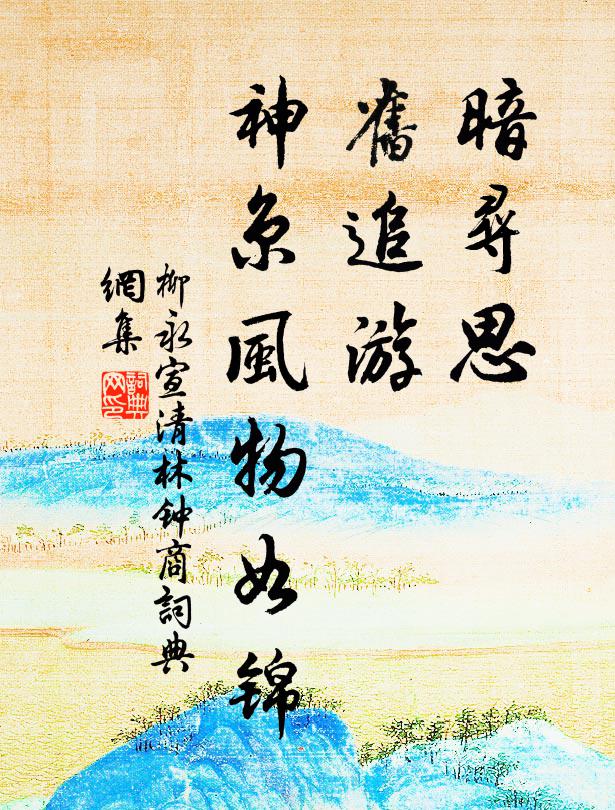 暗尋思
舊追游
神京風物如錦
柳永宣清林钟商詞典
網集
詞典
网印